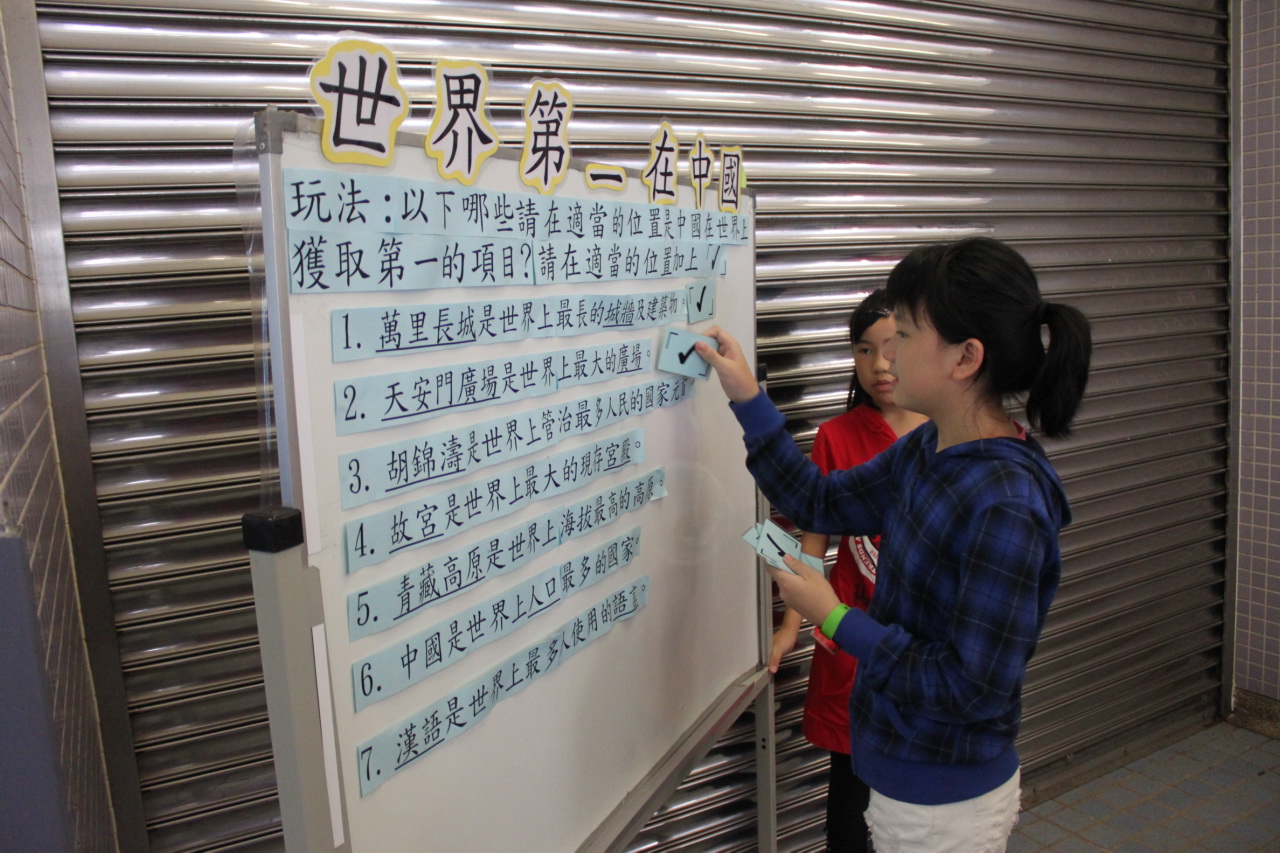 世界第一在中國
玩法：以下哪些請在適當的位置是中國在世界上
獲取第一的項目？請在適當的位置加上「✓」
1. 萬里長城是世界上最長的城牆及建築物。「✓」
2. 天安門廣場是世界上最大的廣場。✓
3. 胡錦濤是世界上管治最多人民的國家元首
4. 故宮是世界上最大的現存宮殿。
5. 青藏高原是世界上海拔最高的高原。
6. 中國是世界上人口最多的國家。
7. 漢語是世界上最多人使用的語言。